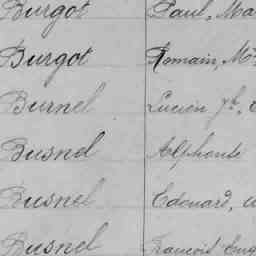 Burgot Paul, Ma
Burgot Romain, M
Burnel Lucien
Busnel Alphonse
Busnel Edouard,
Busnel François Eug